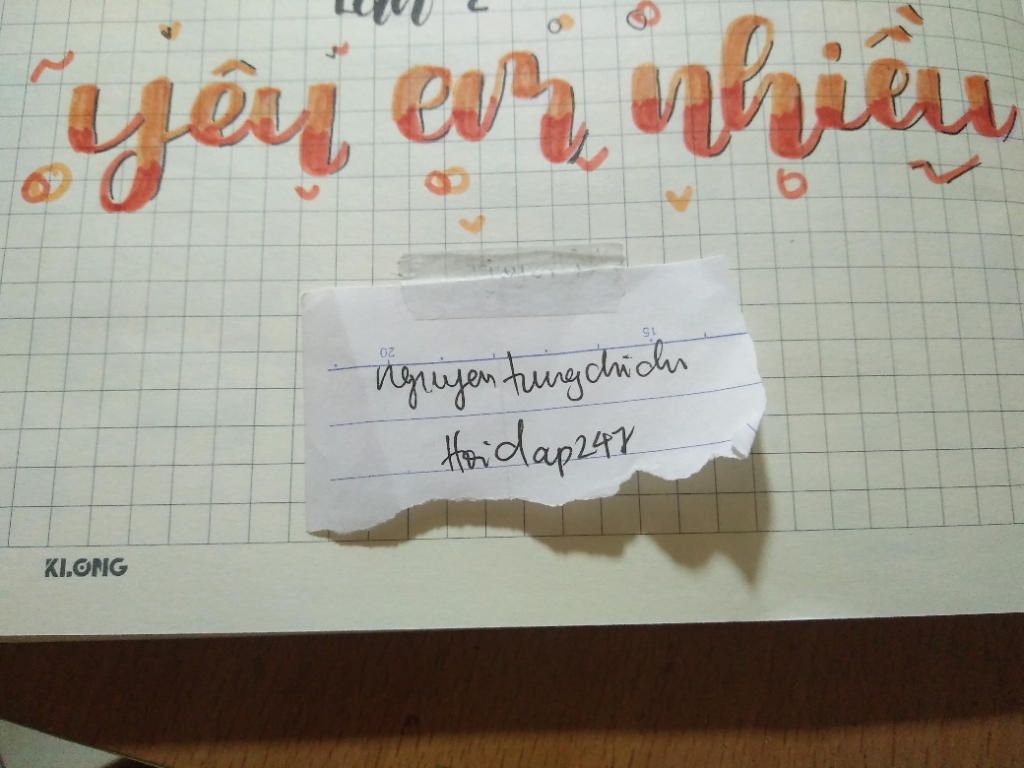 yêu em nhiều
20 15
nguyentungchichi
Hoidap247
KLONG